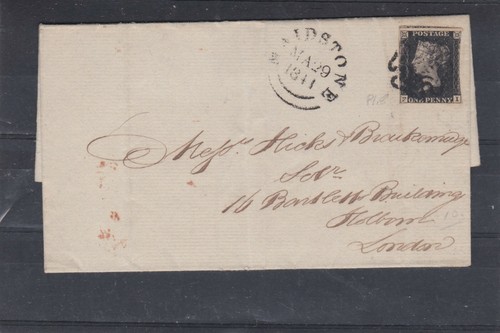 MAIDSTONE
MA 29
1841
POSTAGE
ONE PENNY
I
Pl 8
Messrs Hicks & Braikenridge
Solrs
16 Bartletts Building
Holborn
London